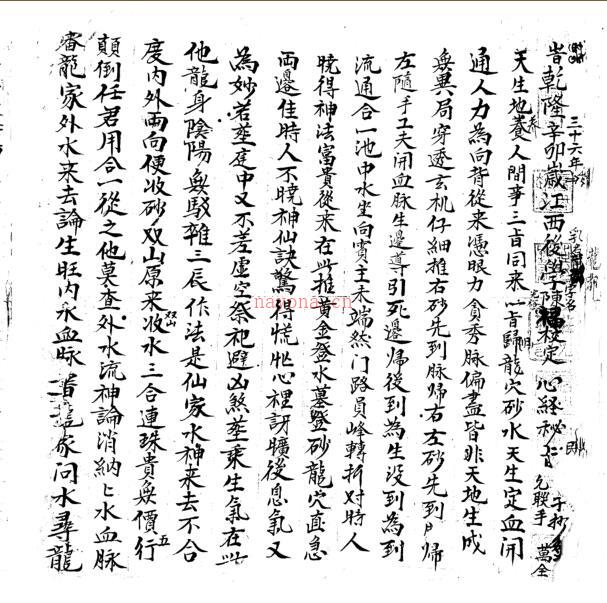 旹乾隆辛卯歲江西後學陳 校定 心経秘旨
三十六年
龍
允躲手
萬全
天生地養人開事三旨同来一旨歸龍穴砂水天生定血開
通人力為向背從来憑眼力貪秀脉偏盡皆非天地生成
無異局穿透玄机仔細推右砂先到脉歸右左砂先到 歸
左隨手工夫開血脉生邊導引死邊歸後到為生没到為到
流通合一池中水坐向賓主未端然门路員峰轉折对時人
曉得神法富貴從来在此推黄金盛水墓盛砂龍穴直急
両邊佳時人不曉神仙訣驚得慌忙心裡訝曠後息氣又
為妙若塟庭中又不差虛空祭祀避凶煞塟乘生氣在此
他龍身陰陽無駁雜三辰作法是仙家水神来去不合
双山
度内外両向便收砂双山原来收水三合連珠貴無價行
五
顛倒任君用合一從之他莫查外水流神論消納上水血脉
審龍家外水来去論生旺内氷血脉 龍家问水尋龍
nayona.cn